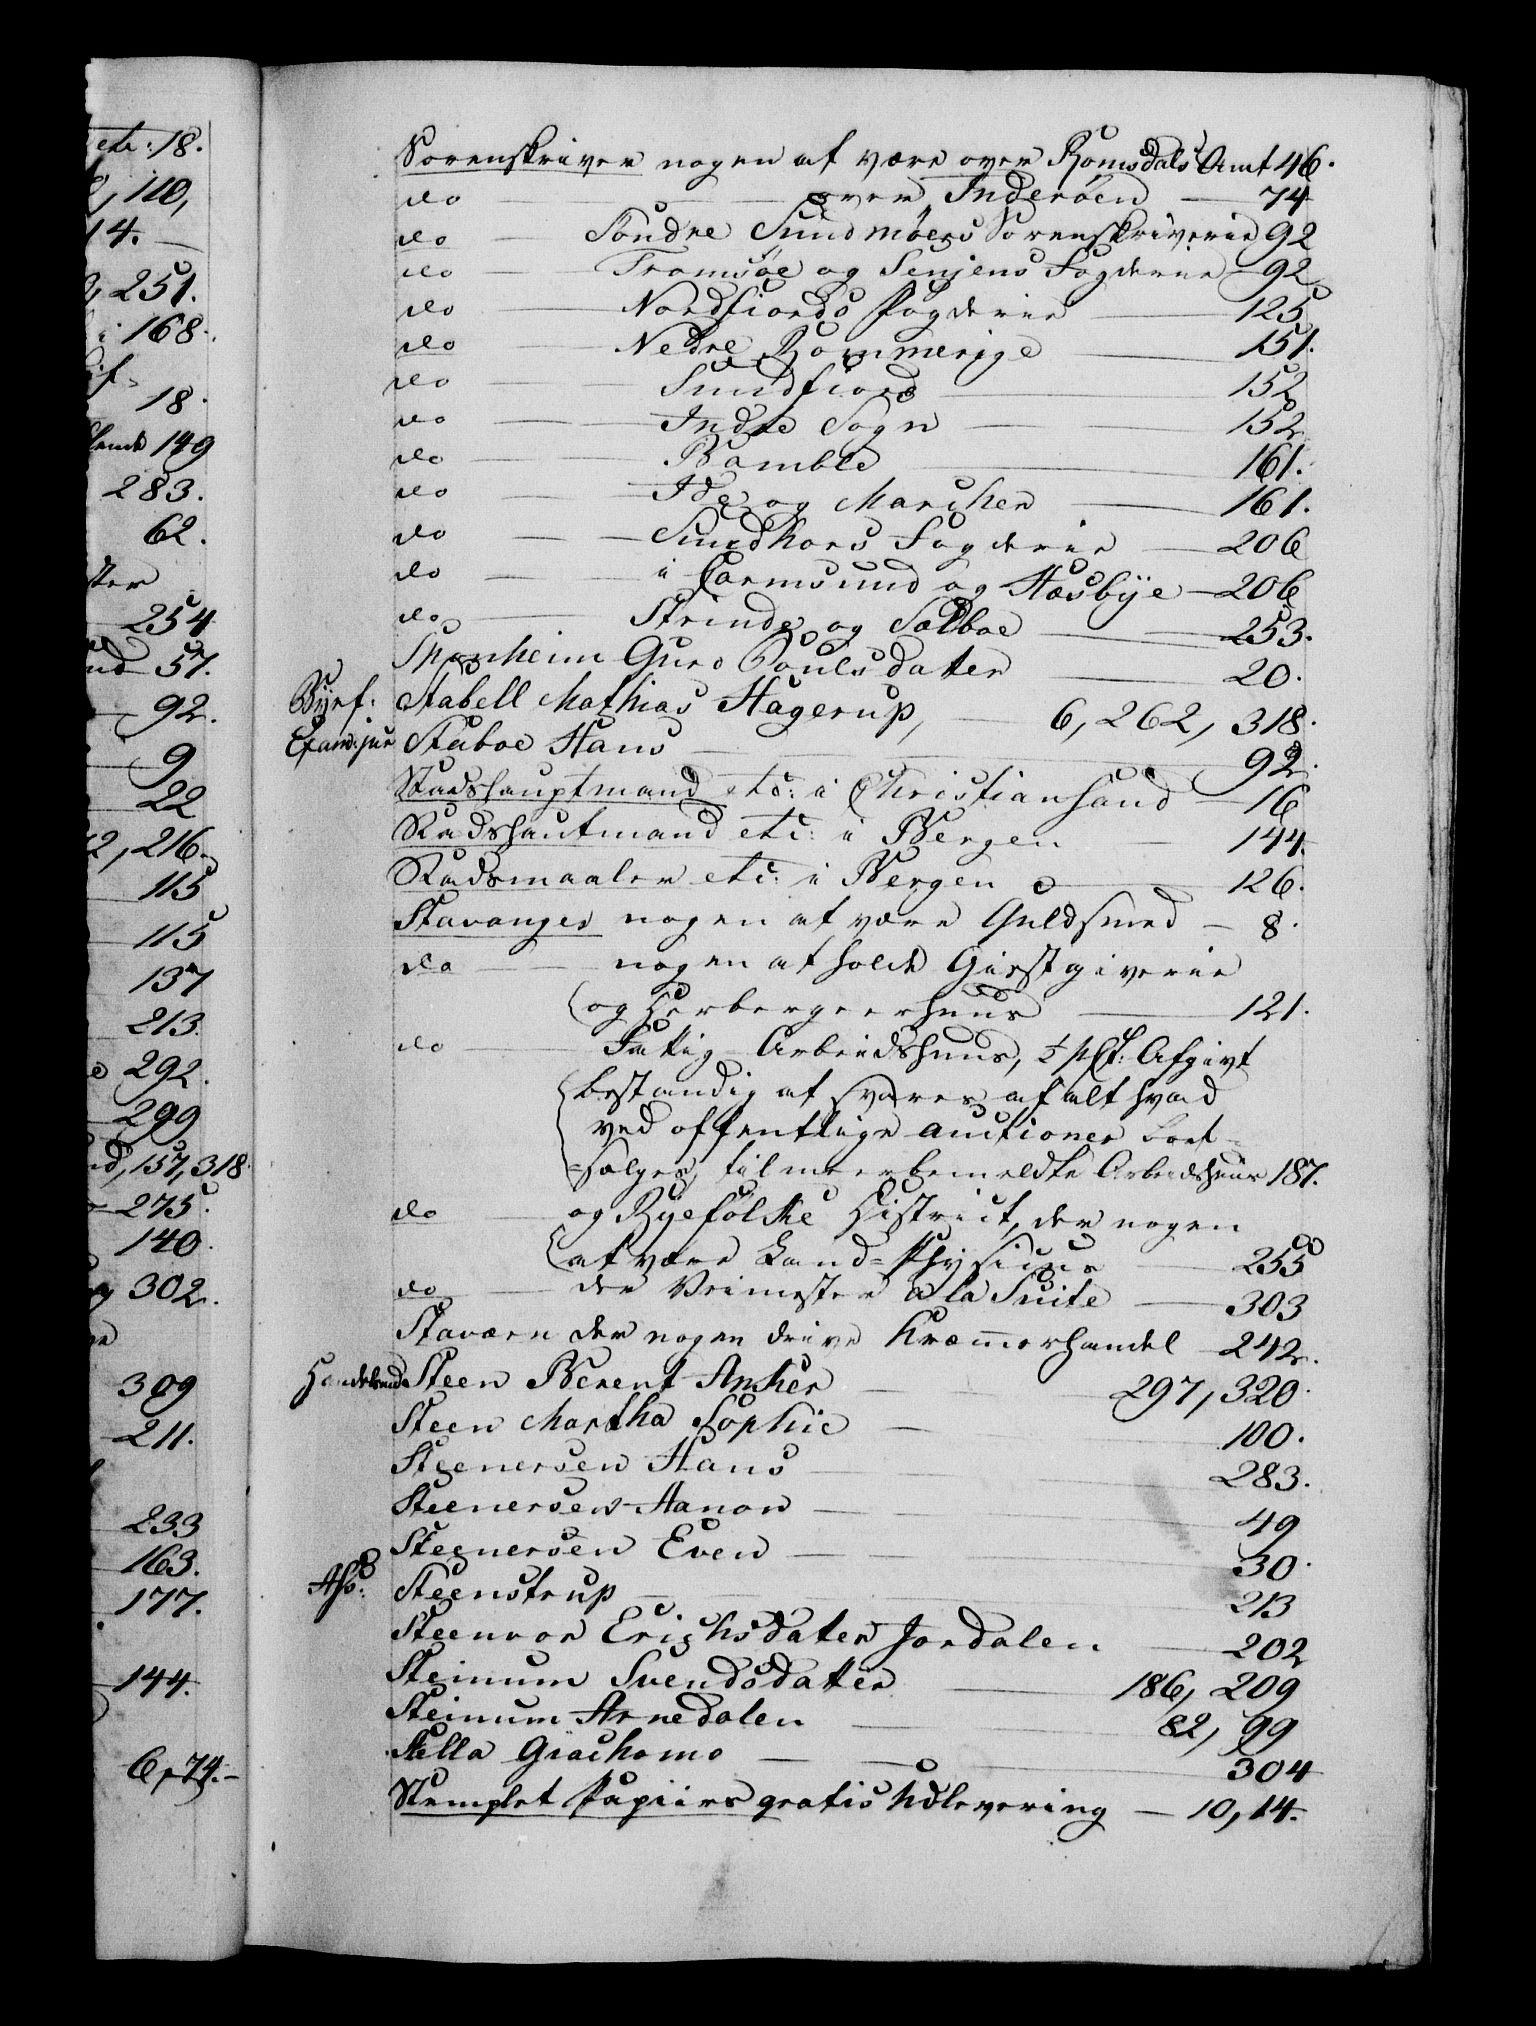 ete: 18.
110,
14.
251.
i 168.
18.
149
283.
62.
254
57.
92.
9
22
12, 216.
115
115
137
213.
292.
299
157, 318.
275.
140.
302.
309
211.
233
163.
177.
144.
6, 74.
Sorenskriver nogen at være over Romsdals Amt 46.
do — over Inderöen — 74
do — Söndre Sundmöers Sorenskriverie 92
do — Tromsöe og Senjens Fogderie — 92
do — Nordfiords Fogderie — 125
do — Nedre Rommerige — 151.
do — Sundfiord — 152
do — Indre Sogn — 152
do — Bamble — 161.
do — Ide og Marcker — 161.
do — Sundhors Fogderie — 206
do — i Carmsund og Hæsbye — 206
do — Strinde og Sælboe — 253.
Sponheim Guro Poulsdatter — 20.
Byef: Stabell Mathias Hagerup, — 6, 262, 318.
Exam: jur Staboe Hans — 92.
Stadshauptmand etc: i Christiansand — 16
Stadshautmand etc: i Bergen — 144.
Stadsmaaler etc: i Bergen — 126.
Stavanger nogen at være Guldsmed — 8.
do — nogen at holde Giestgiverie
og Herbergeerhuus — 121.
do — Fattig Arbeidshuus, ½ pCt: Afgivt
bestandig at svares af alt hvad
ved offentlige auctioner bort-
=sælges, til meerbemeldte Arbeidshuus 187.
do — og Ryefölske District, der nogen
at være Land=Physicus — 255
do — der Veimester a la Suite — 303
Staværn der nogen drive Kræmmerhandel 242.
Handelsmd Steen Berent Anker — 297, 320.
Steen Martha Sophie — 100.
Steenersen Hans — 283.
Steenersen Hanon — 49
Steenersen Even — 30.
Ass: Steenstrup — 213
Steenvor Erichsdatter Jordalen — 202
Steinum Svendsdatter — 186, 209
Steinum Arnedalen — 82, 99
Stella Giachomo — 304
Stemplet Papiirs gratis Udlevering — 10, 14.